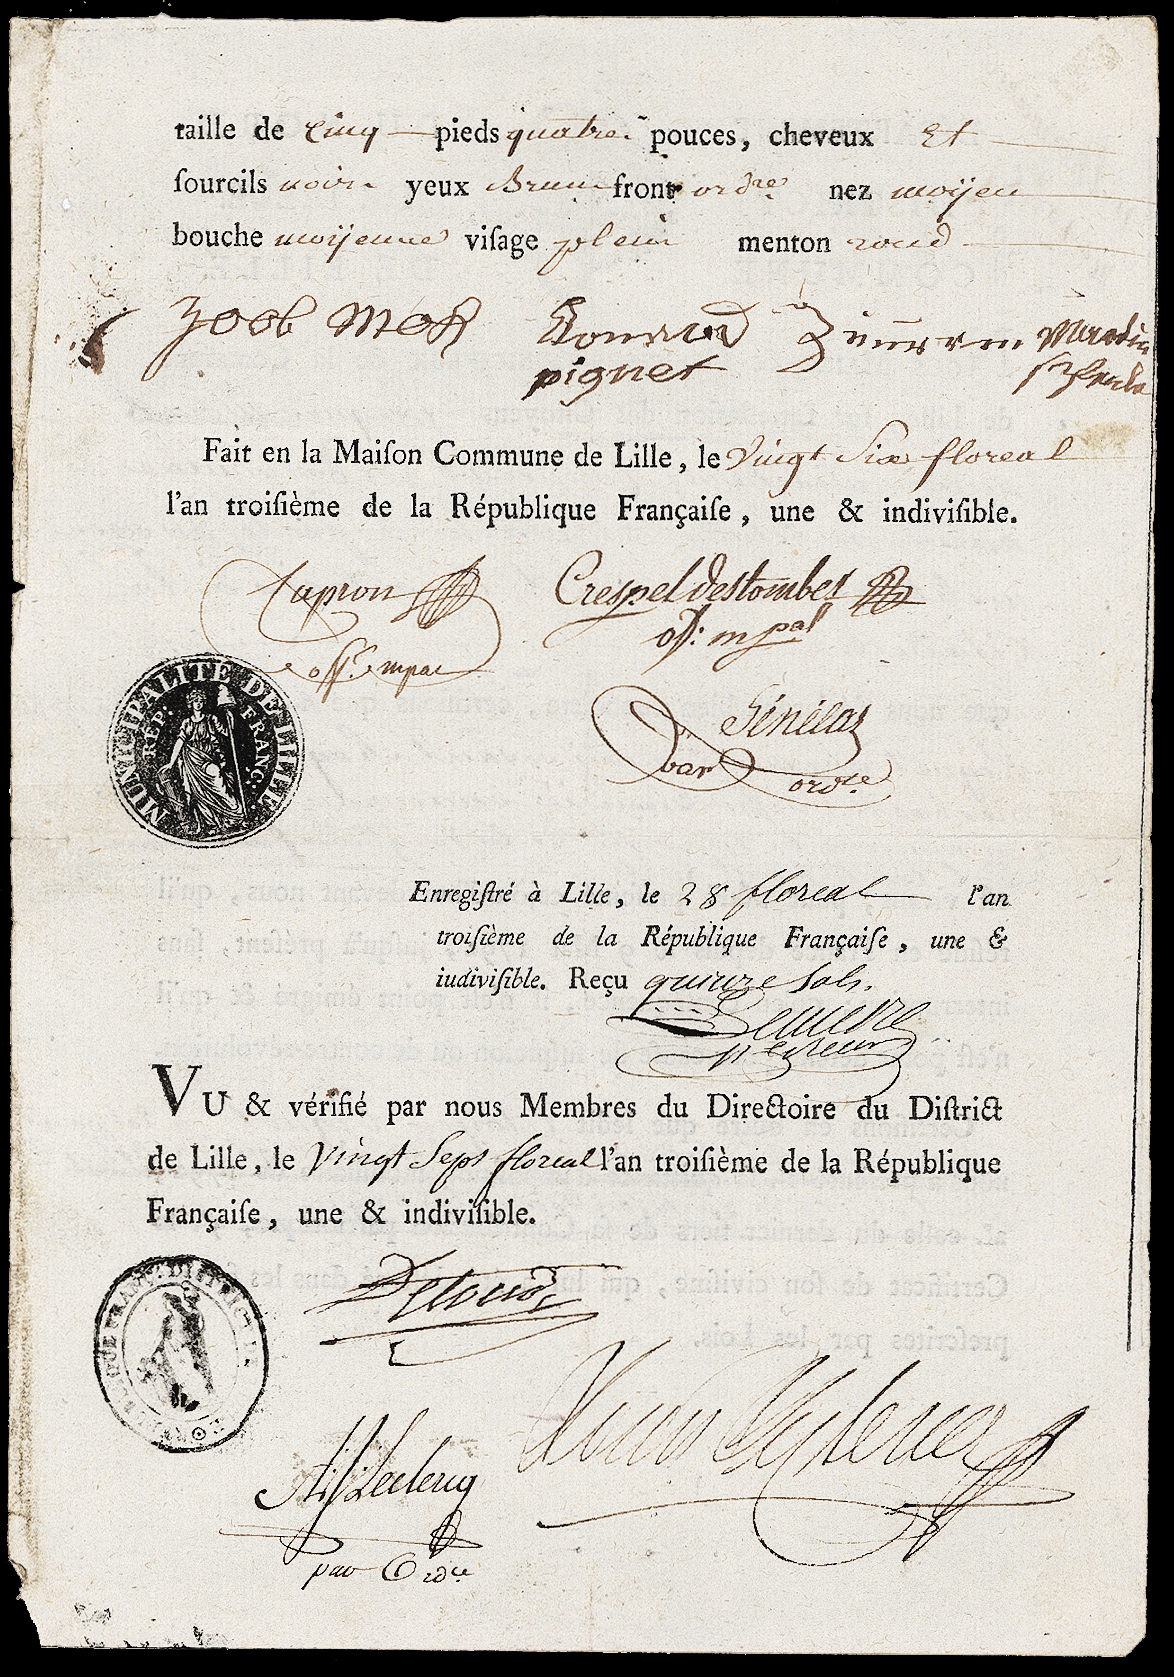 taille de Cinq pieds quatre pouces, cheveux Et
ſourcils noirs yeux Brun front ordre nez moÿen
bouche moÿenne viſage plein menton rond
Joob Mok Conrad Martin
pignet
Fait en la Maiſon Commune de Lille, le Vingt Six floreal
l'an troiſième de la République Françaiſe, une & indiviſible.
Capron Crespel destombes
off. mpal
off. mpal
MUNICIPALITE DE LILLE
REP. FRANÇ.
par ordre
Enregiſtré à Lille, le 28 floreal l'an
troiſième de la République Françaiſe, une &
iudiviſible. Reçu quinze Sols.
VU & vérifié par nous Membres du Directoire du Diſtrict
de Lille, le Vingt Sept floreal l'an troiſième de la République
Françaiſe, une & indiviſible.
Leclercq
par Ordre